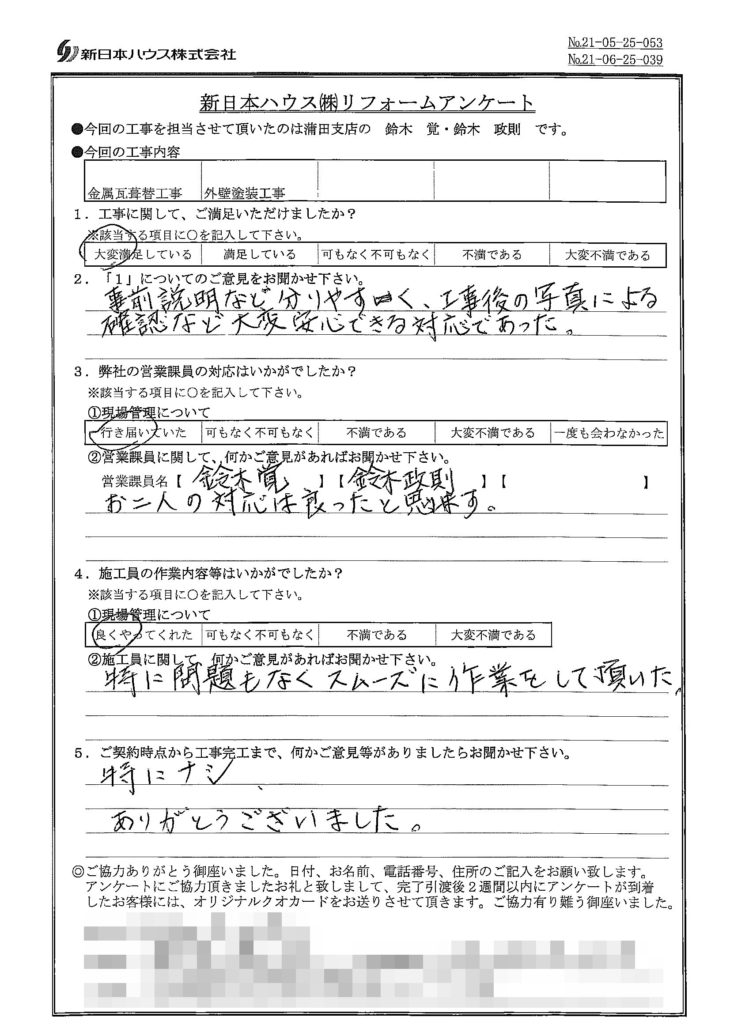 新日本ハウス株式会社
№21-05-25-053
№21-06-25-039
新日本ハウス㈱リフォームアンケート
●今回の工事を担当させて頂いたのは蒲田支店の 鈴木 覚・鈴木 政則 です。
●今回の工事内容
金属瓦葺替工事 外壁塗装工事
1．工事に関して、ご満足いただけましたか？
※該当する項目に○を記入して下さい。
大変満足している 満足している 可もなく不可もなく 不満である 大変不満である
2．「1」についてのご意見をお聞かせ下さい。
事前説明など分りやすく、工事後の写真による
確認など大変安心できる対応であった。
3．弊社の営業課員の対応はいかがでしたか？
※該当する項目に○を記入して下さい。
①現場管理について
行き届いていた 可もなく不可もなく 不満である 大変不満である 一度も会わなかった
②営業課員に関して、何かご意見があればお聞かせ下さい。
営業課員名【 鈴木覚 】【 鈴木政則 】【 】
お二人の対応は良ったと思います。
4．施工員の作業内容等はいかがでしたか？
※該当する項目に○を記入して下さい。
①現場管理について
良くやってくれた 可もなく不可もなく 不満である 大変不満である
②施工員に関して、何かご意見があればお聞かせ下さい。
特に問題もなくスムーズに作業をして頂いた。
5．ご契約時点から工事完工まで、何かご意見等がありましたらお聞かせ下さい。
特にナシ、
ありがとうございました。
◎ご協力ありがとう御座いました。日付、お名前、電話番号、住所のご記入をお願い致します。
アンケートにご協力頂きましたお礼と致しまして、完了引渡後２週間以内にアンケートが到着
したお客様には、オリジナルクオカードをお送りさせて頂きます。ご協力有り難う御座いました。